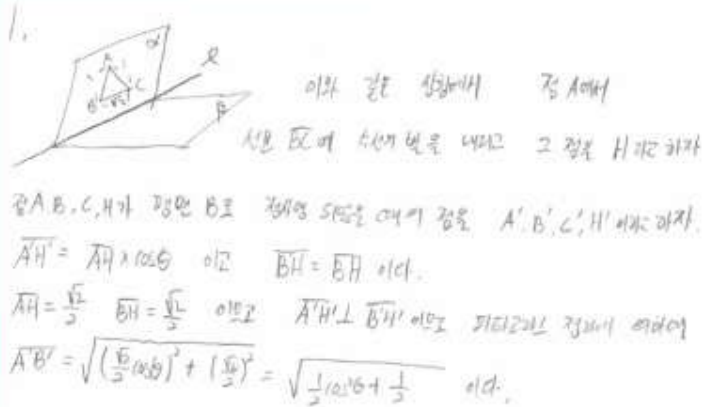 1.
A 1 1 α l
B √2 C β
이와 같은 상황에서 점 A에서
선분 BC에 수선의 발을 내리고 그 점을 H라고 하자
점 A, B, C, H가 평면 β로 정사영 되었을 때의 점을 A', B', C', H'이라고 하자.
A'H' = AH × cosθ 이고 BH = BH 이다.
AH = √2/2 BH = √2/2 이므로 A'H' ⊥ B'H' 이므로 피타고라스 정리에 의하여
A'B' = √((√2/2 cosθ)² + (√2/2)²) = √(1/2 cos²θ + 1/2) 이다.